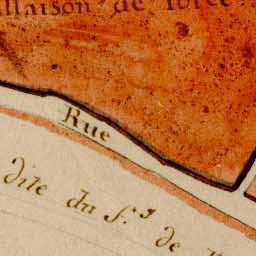 Maison de force
Rue
dite du f.g de